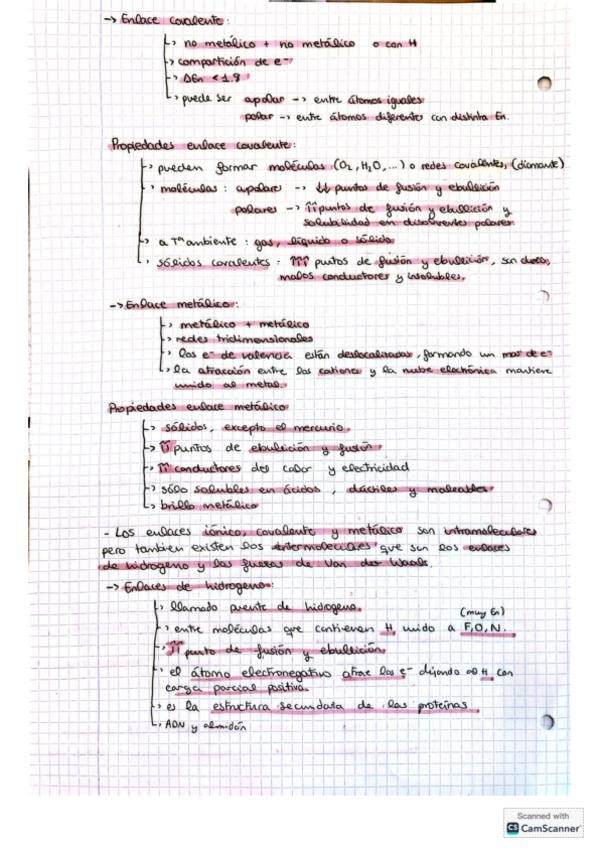 -> Enlace covalente:
↳ no metálico + no metálico o con H
↳ compartición de e⁻
↳ ΔEn < 1.9
↳ puede ser apolar -> entre átomos iguales
polar -> entre átomos diferentes con distinta En.
Propiedades enlace covalente:
↳ pueden formar moléculas (O₂, H₂O, ...) o redes covalentes, (diamante)
↳ moléculas: apolares -> ↓↓ puntos de fusión y ebullición
polares -> ↑↑ puntos de fusión y ebullición y
solubilidad en disolventes polares.
↳ a Tª ambiente: gas, líquido o sólido
↳ sólidos covalentes: ↑↑↑ puntos de fusión y ebullición, son duros,
malos conductores y insolubles.
-> Enlace metálico:
↳ metálico + metálico
↳ redes tridimensionales
↳ los e⁻ de valencia están deslocalizados, formando un mar de e⁻
↳ la atracción entre los cationes y la nube electrónica mantiene
unido al metal.
Propiedades enlace metálico
↳ sólidos, excepto el mercurio.
↳ ↑↑ puntos de ebullición y fusión
↳ ↑↑ conductores del calor y electricidad
↳ sólo solubles en ácidos, dúctiles y maleables
↳ brillo metálico
- Los enlaces iónico, covalente y metálico son intramoleculares
pero tambien existen los intermoleculares que son los enlaces
de hidrogeno y las fuerzas de Van der Waals.
-> Enlaces de hidrogeno:
↳ llamado puente de hidrogeno.
(muy En)
↳ entre moléculas que contienen H unido a F, O, N.
↳ ↑↑ punto de fusión y ebullición
↳ el átomo electronegativo atrae los e⁻ dejando al H con
carga parcial positiva.
↳ es la estructura secundaria de las proteínas
↳ ADN y almidón
Scanned with
CS CamScanner